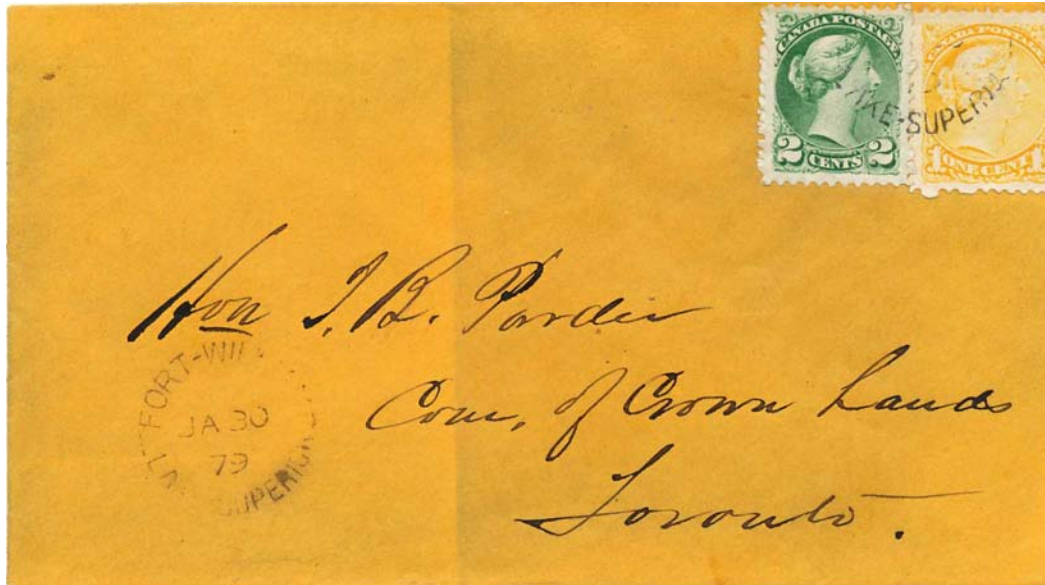 CANADA POSTAGE
2 CENTS 2
1 ONE CENT 1
KE-SUPERIO
Hon T. B. Pardee
Com. of Crown Lands
Toronto.
FORT-WIL
JA 30
79
LA SUPERIO